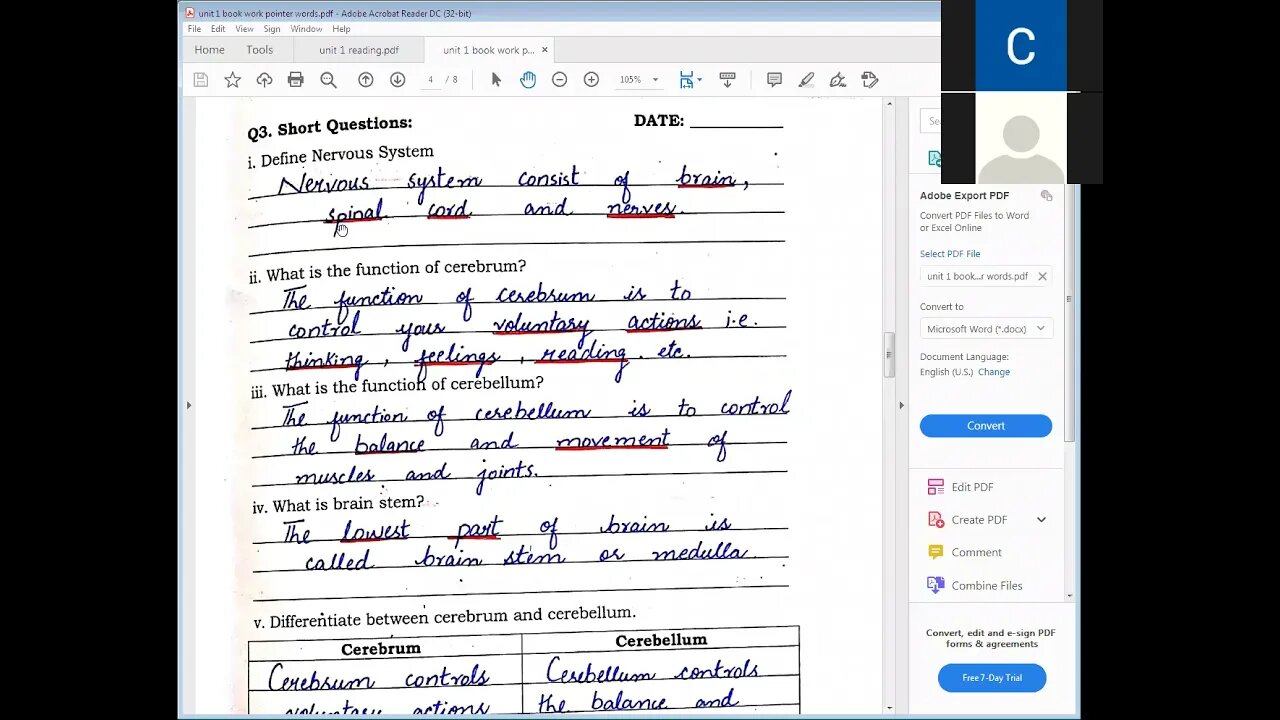 unit 1 book work pointer words.pdf - Adobe Acrobat Reader DC (32-bit)
File Edit View Sign Window Help
Home Tools unit 1 reading.pdf unit 1 book work p... ×
4 / 8 105%
C
Q3. Short Questions: DATE:
i. Define Nervous System
Nervous system consist of brain,
spinal cord and nerves.
ii. What is the function of cerebrum?
The function of cerebrum is to
control your voluntary actions i.e.
thinking, feelings, reading. etc.
iii. What is the function of cerebellum?
The function of cerebellum is to control
the balance and movement of
muscles and joints.
iv. What is brain stem?
The lowest part of brain is
called brain stem or medulla.
v. Differentiate between cerebrum and cerebellum.
Cerebrum Cerebellum
Cerebrum controls Cerebellum controls
voluntary actions the balance and
Adobe Export PDF
Convert PDF Files to Word
or Excel Online
Select PDF File
unit 1 book...r words.pdf
Convert to
Microsoft Word (*.docx)
Document Language:
English (U.S.) Change
Convert
Edit PDF
Create PDF
Comment
Combine Files
Convert, edit and e-sign PDF
forms & agreements
Free 7-Day Trial